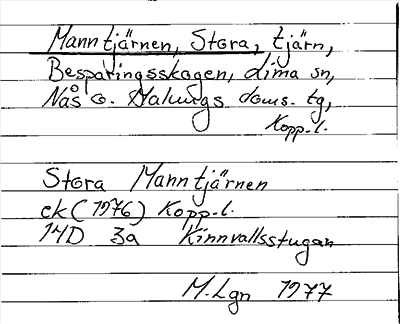 Manntjärnen, Stora, tjärn,
Besparingsskogen, Lima sn,
Nås o. Malungs doms. tg,
Kopp.l.
Stora Manntjärnen
ek (1976) Kopp.l.
14D 3a Kinnvallsstugan
M.Lgn 1977